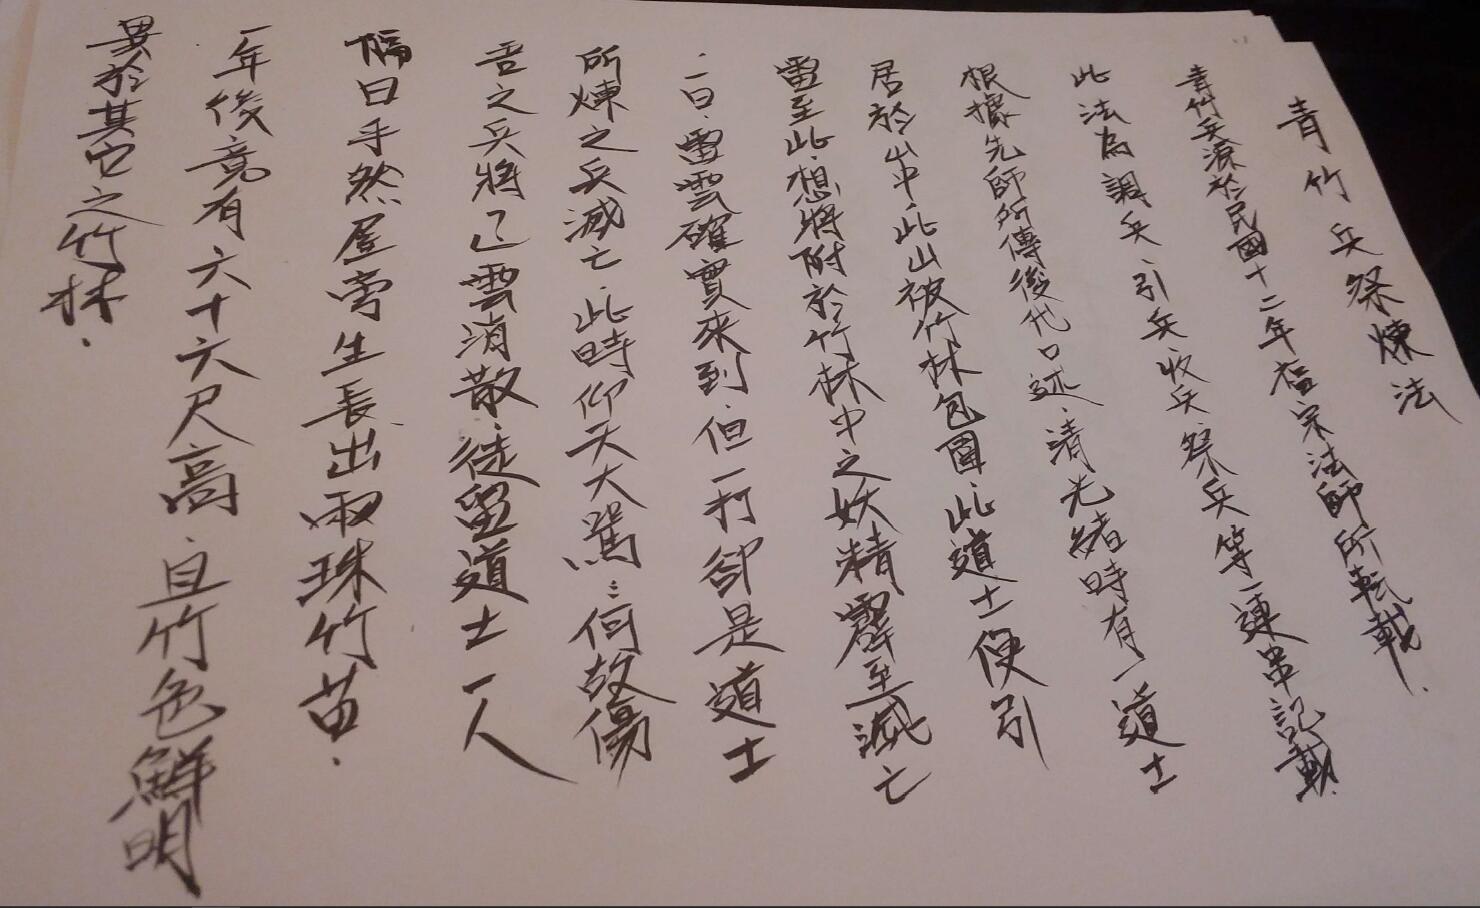 青竹兵祭煉法
青竹兵源於民國十二年福宗法師所転載.
此法為調兵、引兵、收兵、祭兵等一連串記載.
根據先師所傳後代口述.清光緒時有一道士
居於山中.此山被竹林包圍.此道士便引
雷至此.想將附於竹林中之妖精霹至滅亡
.一日.雷雲確實來到.但一打卻是道士
所煉之兵滅亡.此時仰天大罵:何故傷
吾之兵將已雲消散.徒留道士一人
隔日乎然屋旁生長出兩珠竹苗.
一年後竟有六十六尺高.且竹色鮮明
異於其它之竹林.